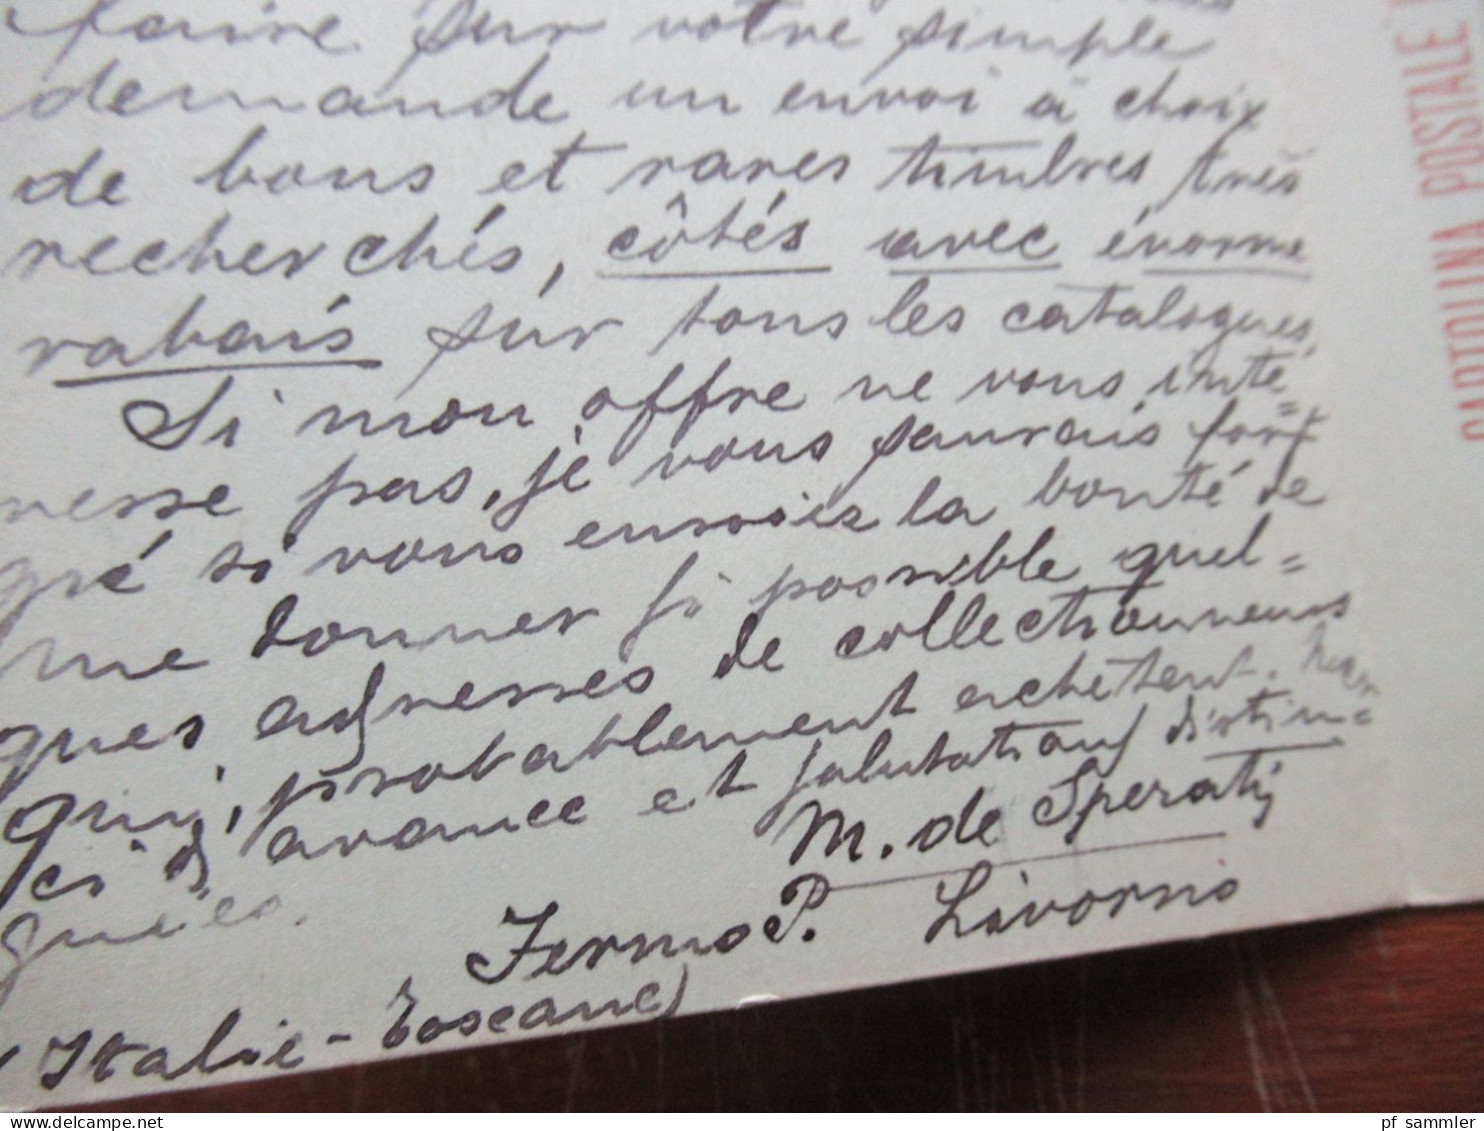 faire sur votre simple
demande un envoi à choix
de bons et rares timbres très
recherchés, côtés avec énorme
rabais sur tous les catalogues.
Si mon offre ne vous inté=
resse pas, je vous saurais fort
gré si vous ensoiez la bonté de
me donner si possible quel=
ques adresses de collectionneurs
qui, probablement achètent. Mer
ci d'avance et salutations distin=
guées.
M. de Sperati
Fermo P. Livorno
(Italie - Toscane)
CARTOLINA POSTALE
pf sammler